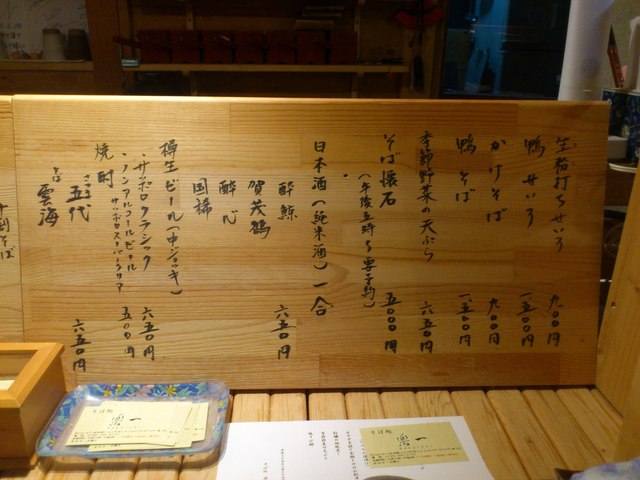 生粉打ちせいろ 九〇〇円
鴨せいろ 一五〇〇円
かけそば 九〇〇円
鴨そば 一五〇〇円
季節野菜の天ぷら 六五〇円
そば懐石 五〇〇〇円
(午後五時〜要予約)
日本酒(純米酒)一合
酔鯨 六五〇円
賀茂鶴
酔心
国稀
樽生ビール(中ジョッキ)
・サッポロクラシック 六五〇円
・ノンアルコールビール 五〇〇円
サッポロ
焼酎
さつま 五代 六五〇円
そば 雲海
割そば
そば処
楽一
そば処
楽一